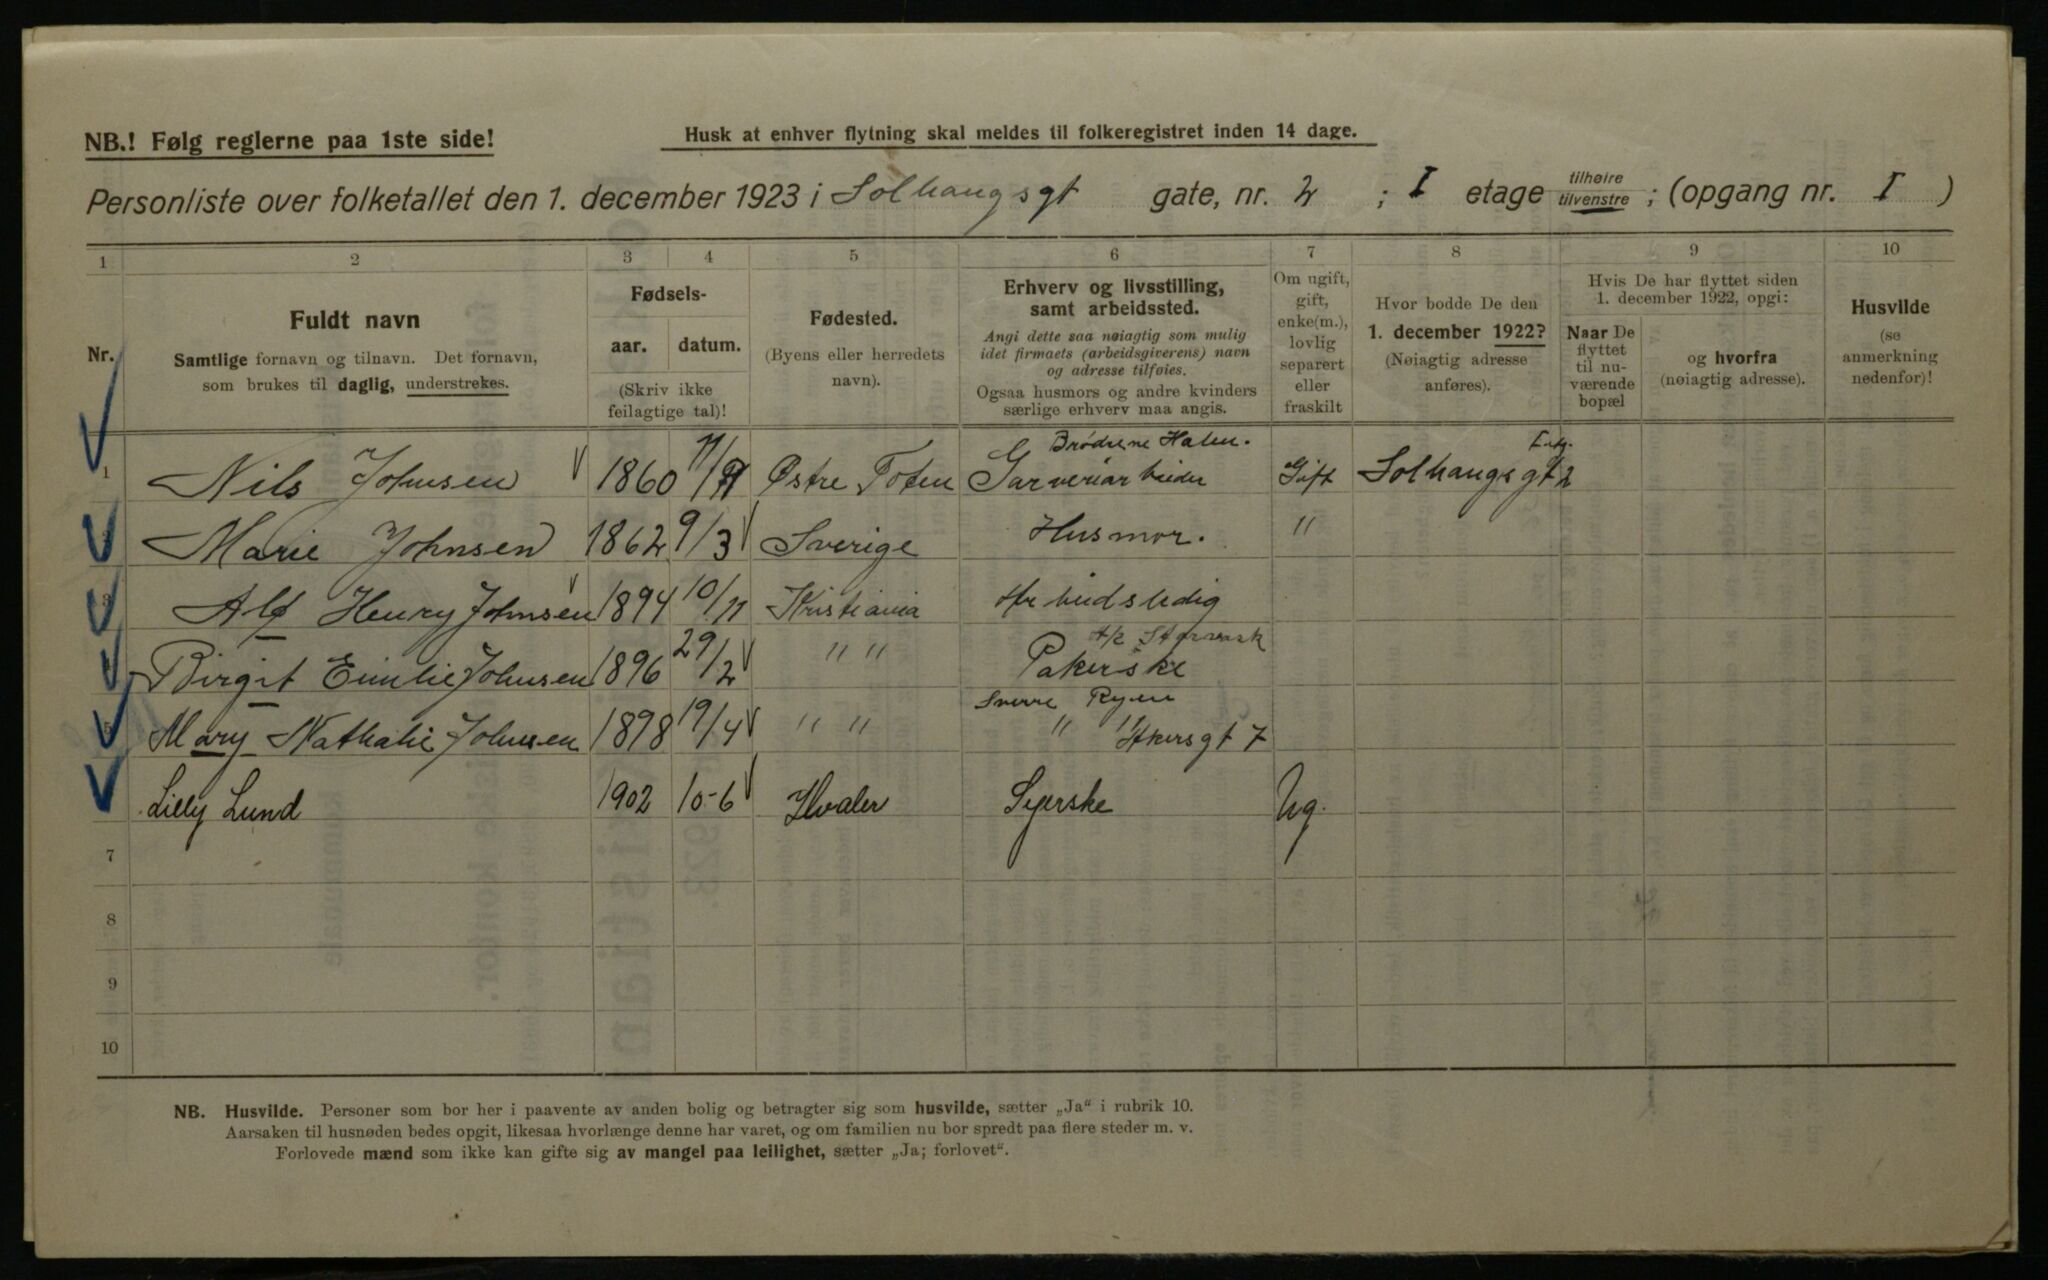 NB.! Følg reglerne paa 1ste side!
Husk at enhver flytning skal meldes til folkeregistret inden 14 dage.
Personliste over folketallet den 1. december 1923 i Solhaugsgt gate, nr. 2 ; I etage tilhøire tilvenstre ; (opgang nr. I )
1 2 3 4 5 6 7 8 9 10
Nr.
Fuldt navn
Samtlige fornavn og tilnavn. Det fornavn,
som brukes til daglig, understrekes.
Fødsels-
aar. datum.
(Skriv ikke
feilagtige tal)!
Fødested.
(Byens eller herredets
navn).
Erhverv og livsstilling,
samt arbeidssted.
Angi dette saa nøiagtig som mulig
idet firmaets (arbeidsgiverens) navn
og adresse tilføies.
Ogsaa husmors og andre kvinders
særlige erhverv maa angis.
Om ugift,
gift,
enke(m.),
lovlig
separert
eller
fraskilt
Hvor bodde De den
1. december 1922?
(Nøiagtig adresse
anføres).
Hvis De har flyttet siden
1. december 1922, opgi:
Naar De
flyttet
til nu-
værende
bopæl
og hvorfra
(nøiagtig adresse).
Husvilde
(se
anmerkning
nedenfor)!
Brødrene Halen.
1 Nils Johnsen 1860 Østre Toten Garveriarbeider Gift Solhaugsgt 2
Marie Johnsen 1862 9/3 Sverige Husmor. "
3 Alf Henry Johnsen 1894 10/11 Kristiania Arbeidsledig
Birgit Emilie Johnsen 1896 29/2 " " Pakerske
Sverre Ryen
5 Mary Nathalie Johnsen 1898 19/4 " " " " Akersgt 7
Lilly Lund 1902 10-6 Hvaler Syerske Ug.
7
8
9
10
NB. Husvilde. Personer som bor her i paavente av anden bolig og betragter sig som husvilde, sætter „Ja“ i rubrik 10.
Aarsaken til husnøden bedes opgit, likesaa hvorlænge denne har varet, og om familien nu bor spredt paa flere steder m. v.
Forlovede mænd som ikke kan gifte sig av mangel paa leilighet, sætter „Ja; forlovet“.